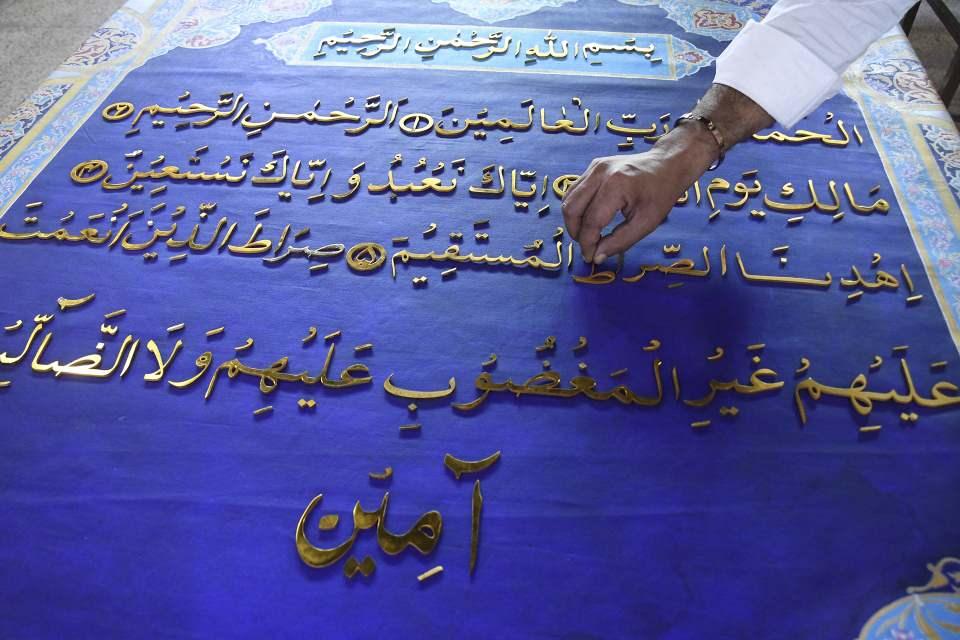 بِسْمِ اللهِ الرَّحْمٰنِ الرَّحِيْمِ
رَبِّ الْعَالَمِيْنَ ١ اَلرَّحْمٰنِ الرَّحِيْمِ ٢
مَالِكِ يَوْمِ اِيَّاكَ نَعْبُدُ وَاِيَّاكَ نَسْتَعِيْنَ ٤
اِهْدِنَا الصِّرَطَ الْمُسْتَقِيْمَ ٥ صِرَاطَ الَّذِيْنَ اَنْعَمْتَ
عَلَيْهِمْ غَيْرِ الْمَغْضُوْبِ عَلَيْهِمْ وَلَا الضَّآلِّيْ
آمِيْن